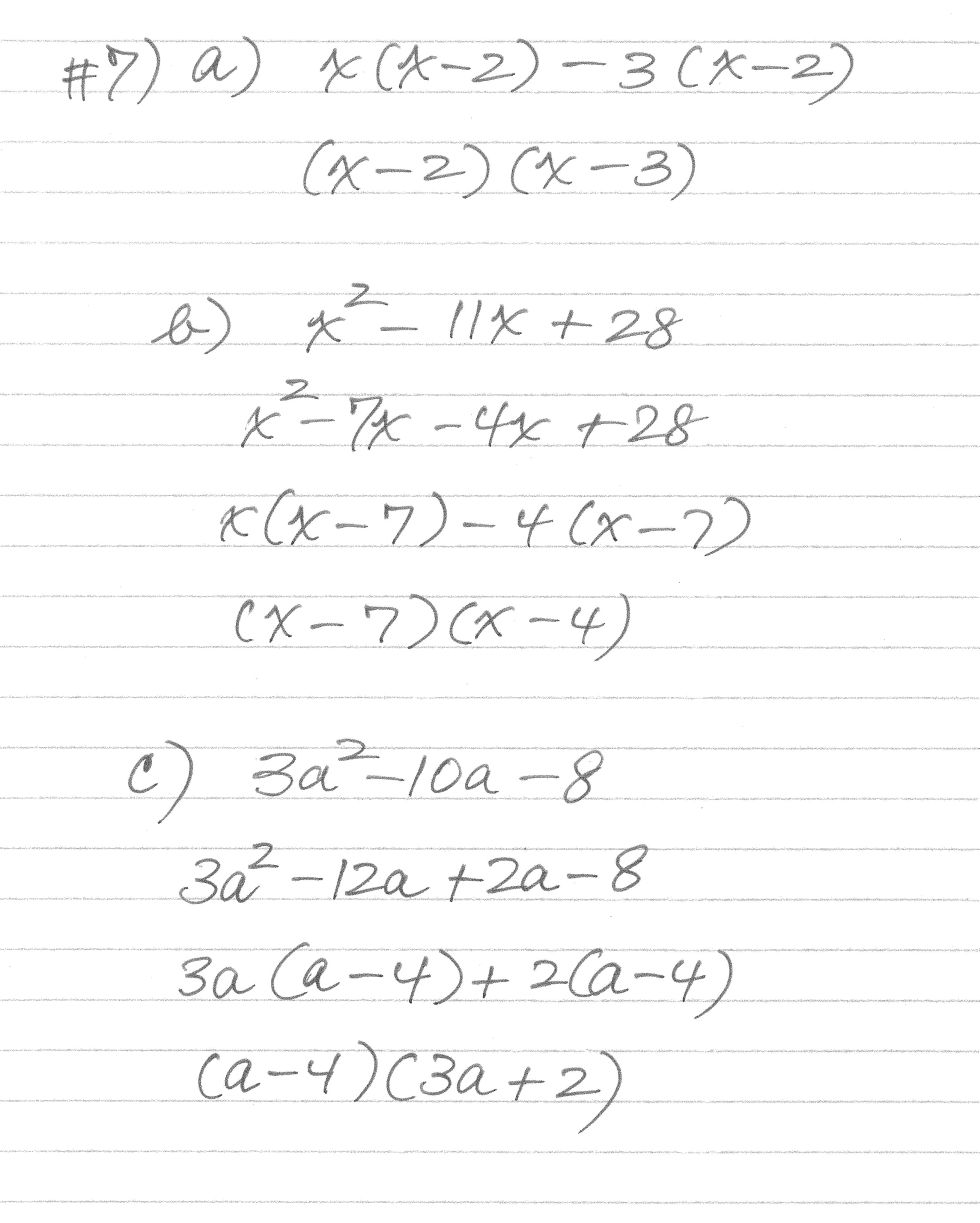 #7) a) x(x-2) - 3(x-2)
(x-2)(x-3)
b) x² - 11x + 28
x² - 7x - 4x + 28
x(x-7) - 4(x-7)
(x-7)(x-4)
c) 3a² - 10a - 8
3a² - 12a + 2a - 8
3a(a-4) + 2(a-4)
(a-4)(3a+2)